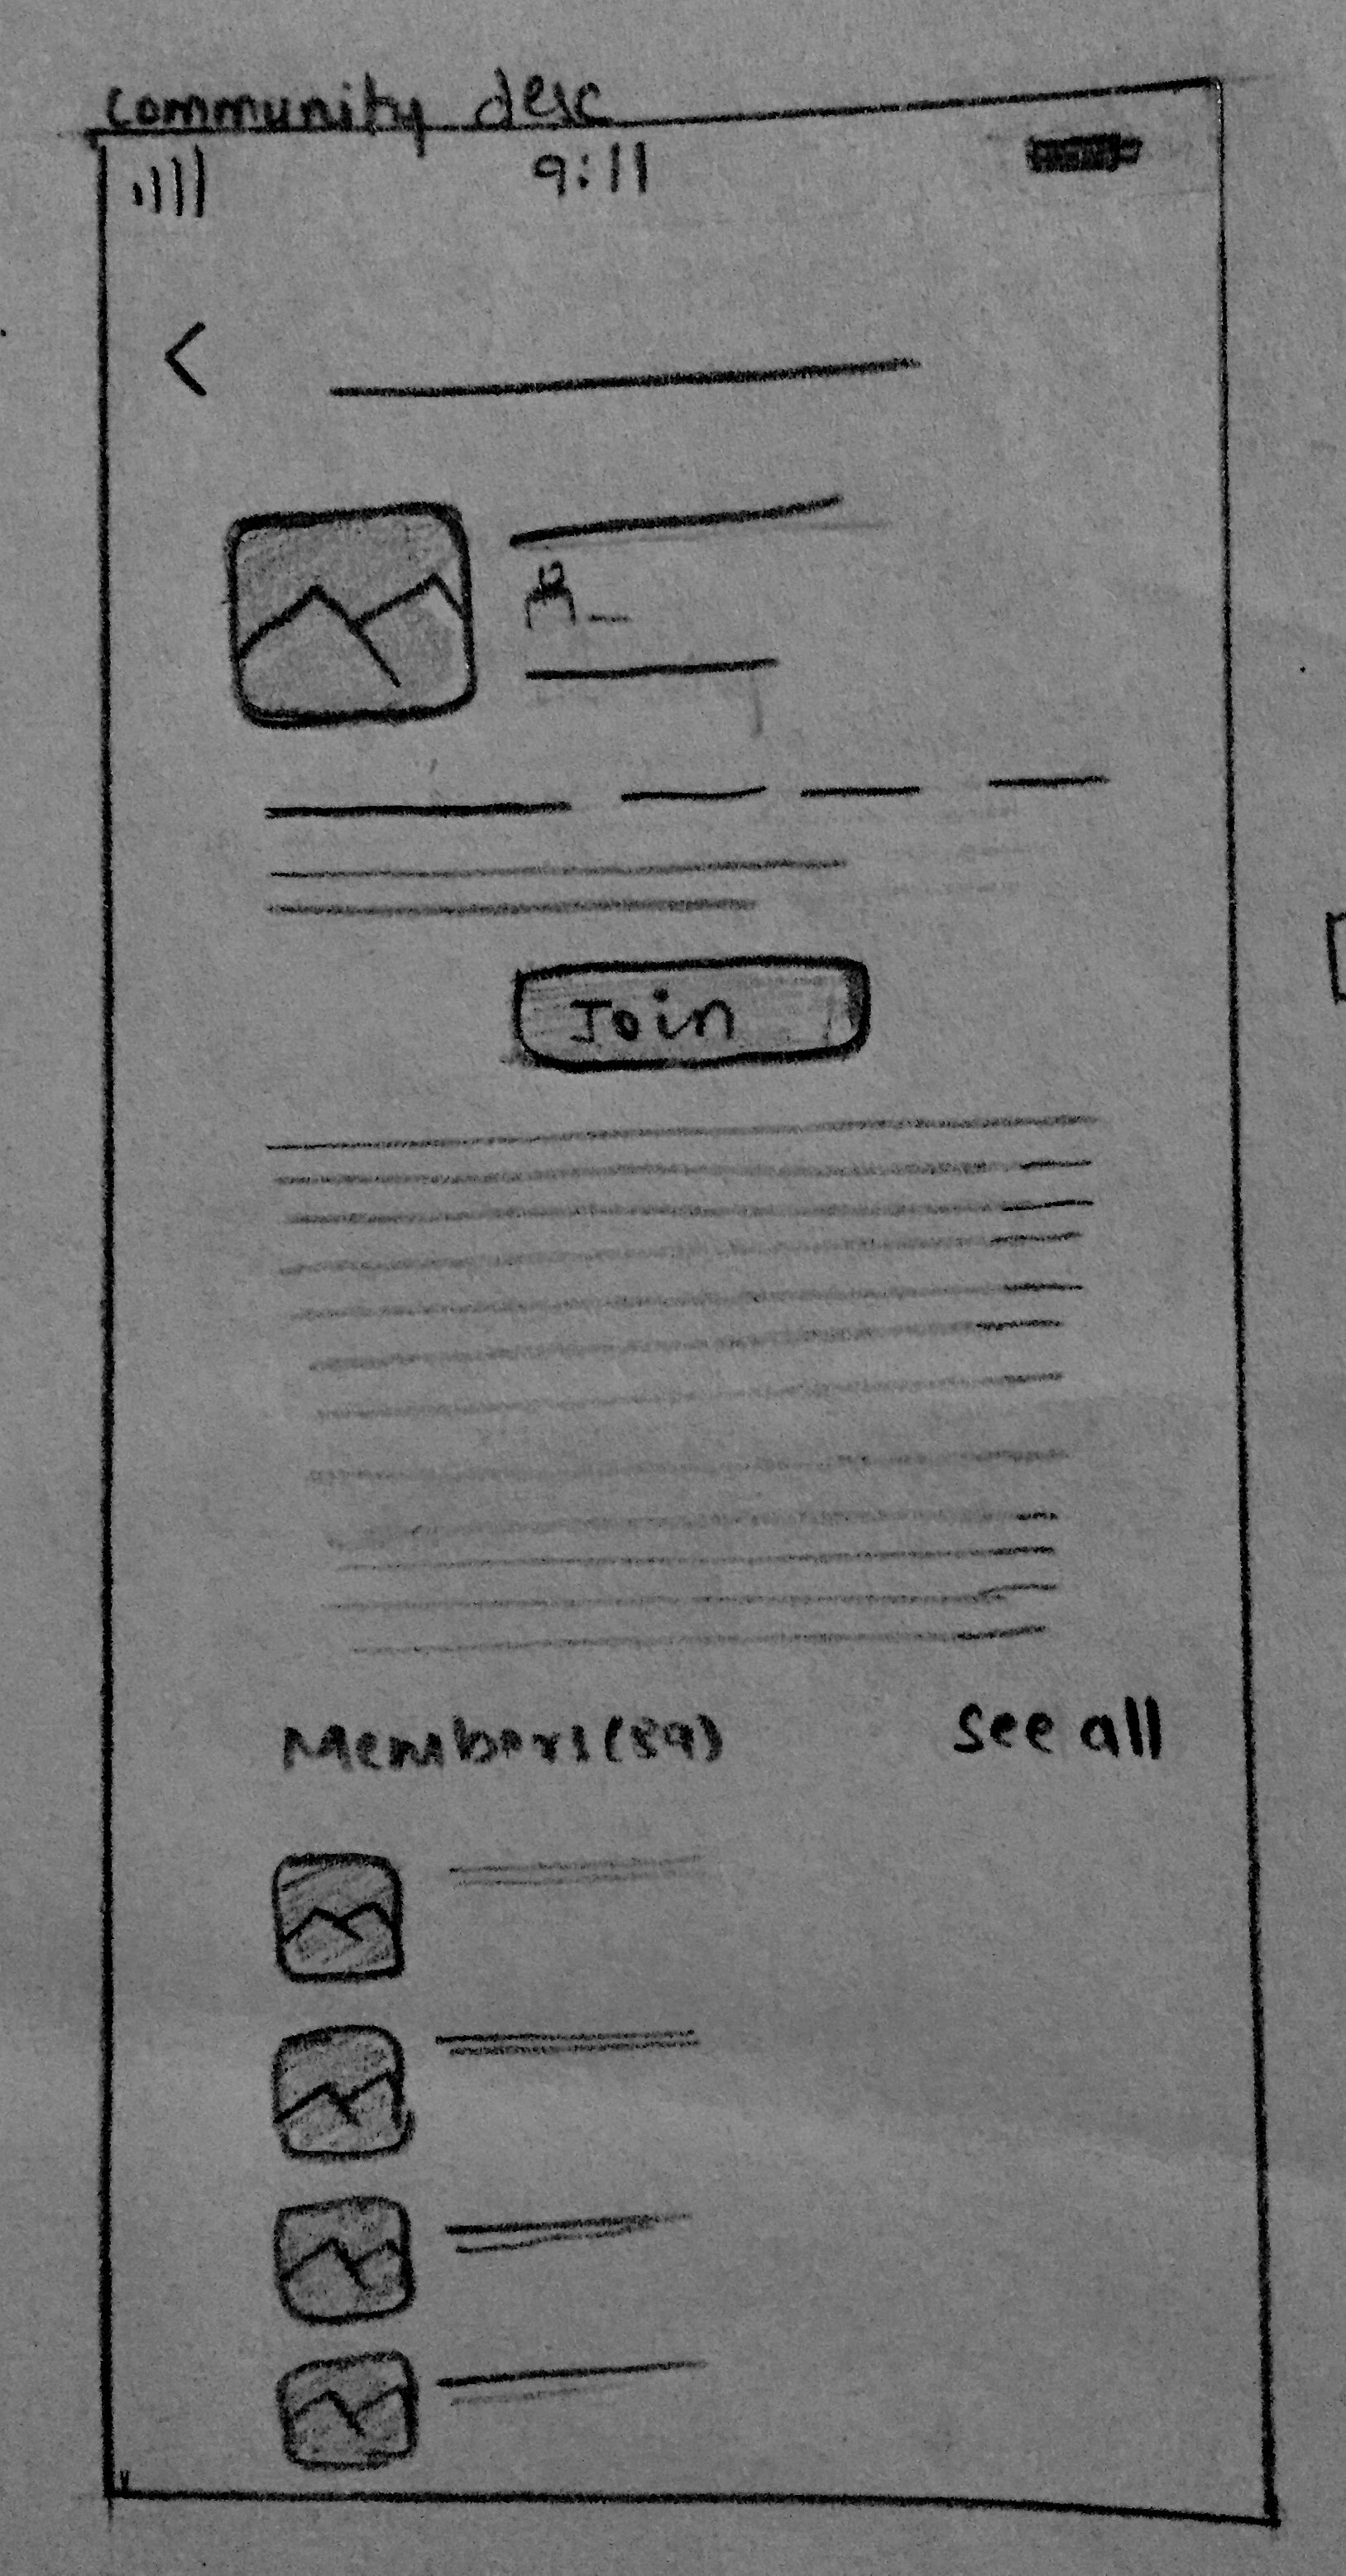 community desc
9:11
Join
Members(89)
see all